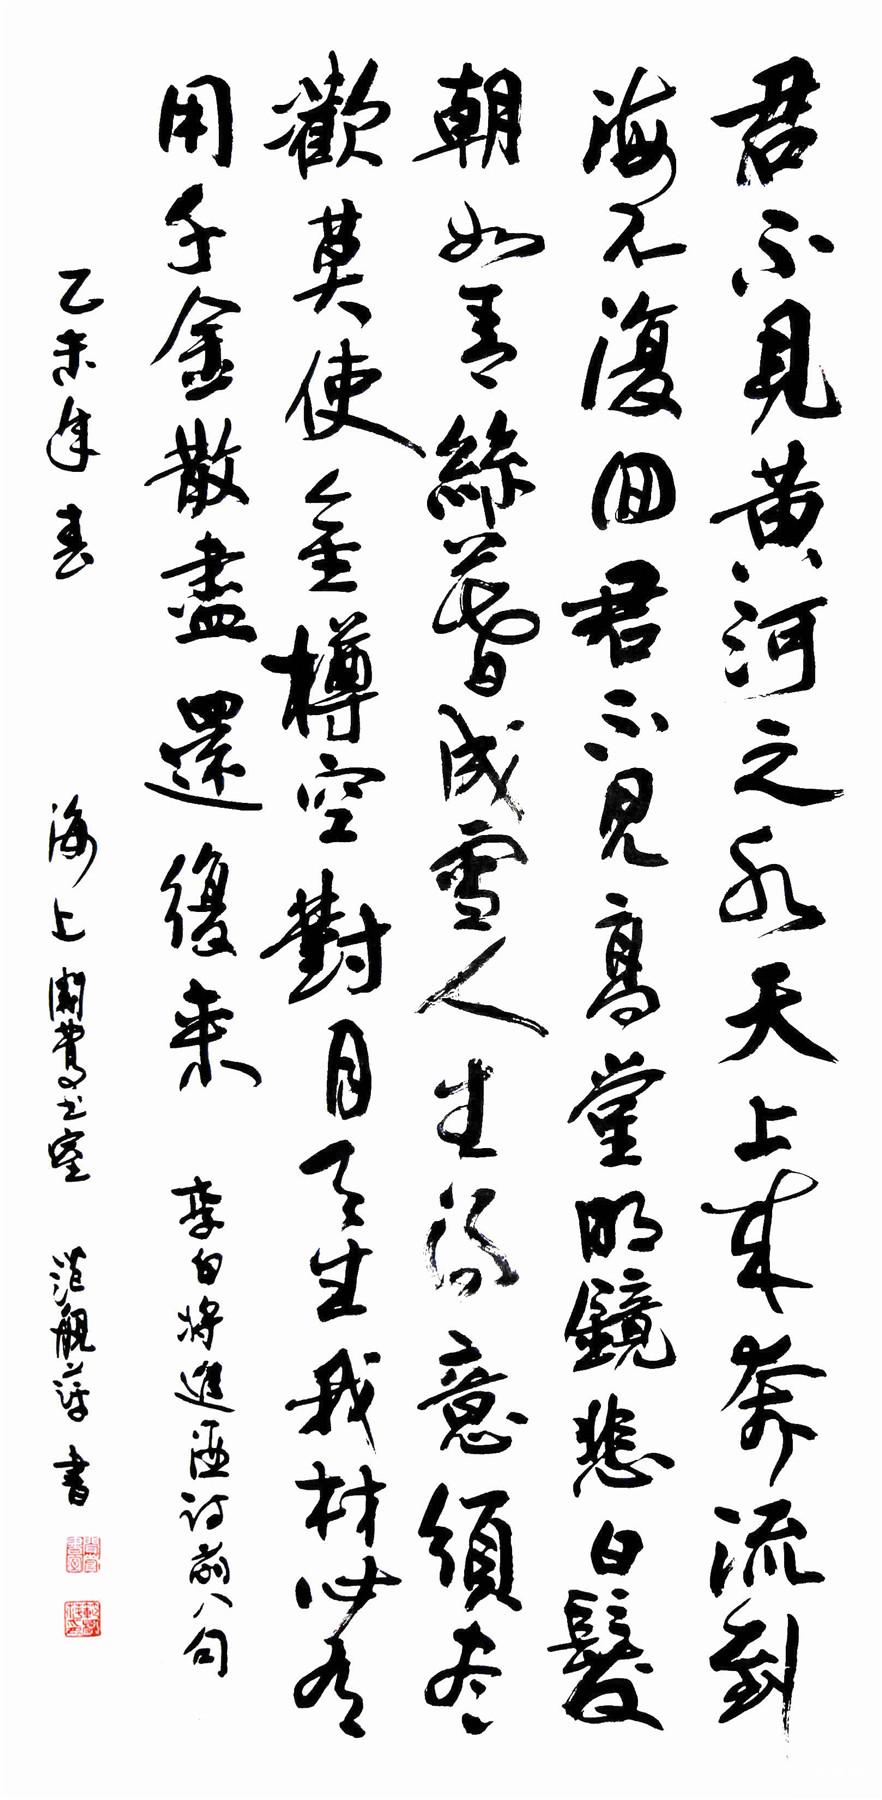 君不見黄河之水天上來奔流到
海不復回君不見高堂明鏡悲白髮
朝如青絲暮成雪人生得意須尽
歡莫使金樽空對月天生我材必有
用千金散盡還復来
李白將進酒诗前八句
乙未年春
海上 書室 范 書